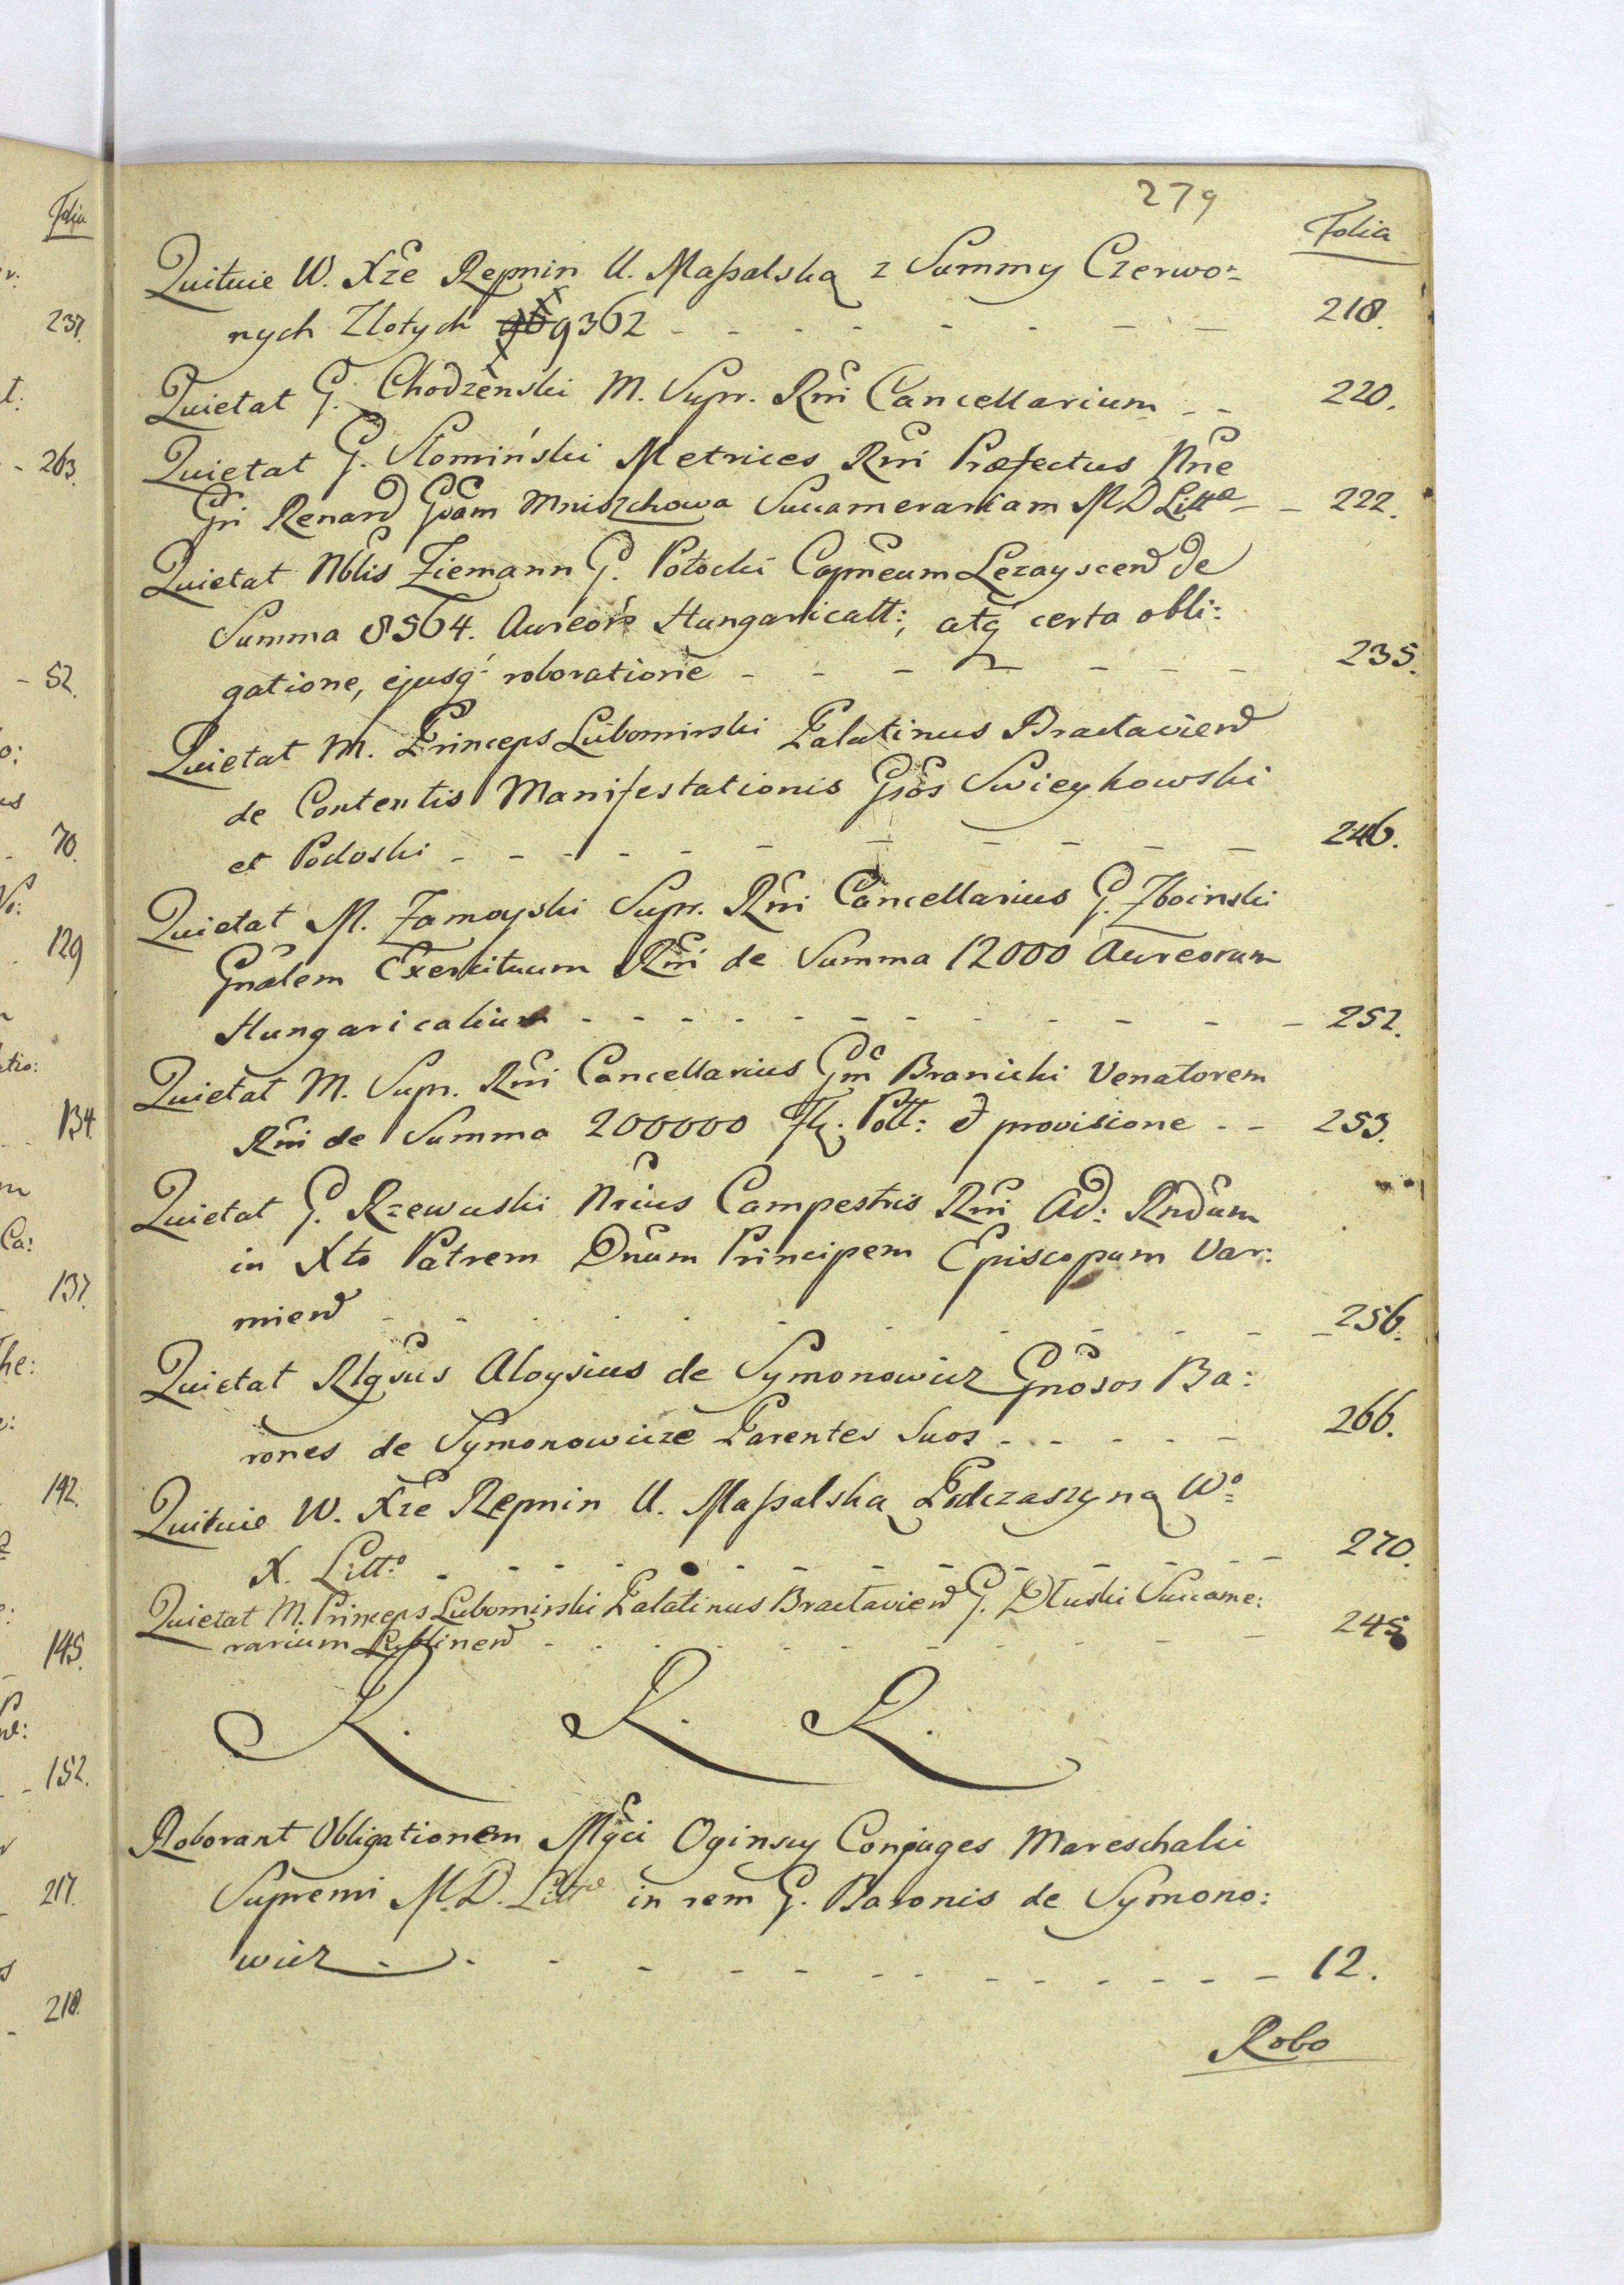 279
Folia
Quituie W. Xże Repnin U. Maſsalską z Summy Czerwo=
nych Zlotych 9362 - - - - - - - - 218.
Quietat G. Chodzenski M. Supr. Rni Cancellarium - - 220.
Quietat G. Słomiński Metrices Rni Præfectus Nne
Gri Renard Gsam Mniszchowa Succamerariam M D Littæ - - 222.
Quietat Nblis Ziemann G. Potocki Capneum Lezayscen de
Summa 8564. Aureor Hungaricatt:, atq certa obli:
gatione, ejusq roboratione - - - - - - - 235.
Quietat M. Princeps Lubomirski Palatinus Braclavien
de Contentis Manifestationis Gsos Swieykowski
et Podoski - - - - - - - - - - - 246.
Quietat M. Zamoyski Supr. Rni Cancellarius G. Zboinski
Gnalem Exercituum Rni de Summa 12000 Aureorum
Hungaricalium - - - - - - - - - - - - 252.
Quietat M. Supr. Rni Cancellarius Gm Branicki Venatorem
Rni de Summa 200000 Fl. Poll: & provisione - - 253.
Quietat G. Rzewuski Nrius Campestris Rni Ad: Rndum
in Xto Patrem Dnum Principem Episcopum Var:
mien - - - - - - - - - - - 256.
Quietat Rlgsus Aloysius de Symonowicz Gnosos Ba:
rones de Symonowicze Parentes Suos - - - - - 266.
Quituie W. Xże Repnin U. Maſsalską Podczaszyną Wº=
X. Littº - - - - - - - - - - - 270.
Quietat M. Princeps Lubomirski Palatinus Braclavien G. Dłuski Succame:
rarium Lublinen - - - - - - - - - - - 245
R. R. R.
Roborant Obligationem Mgci Oginscy Conjuges Mareschalci
Supremi M.D. Littæ in rem G. Baronis de Symono:
wicz - - - - - - - - - - - - - 12.
Robo